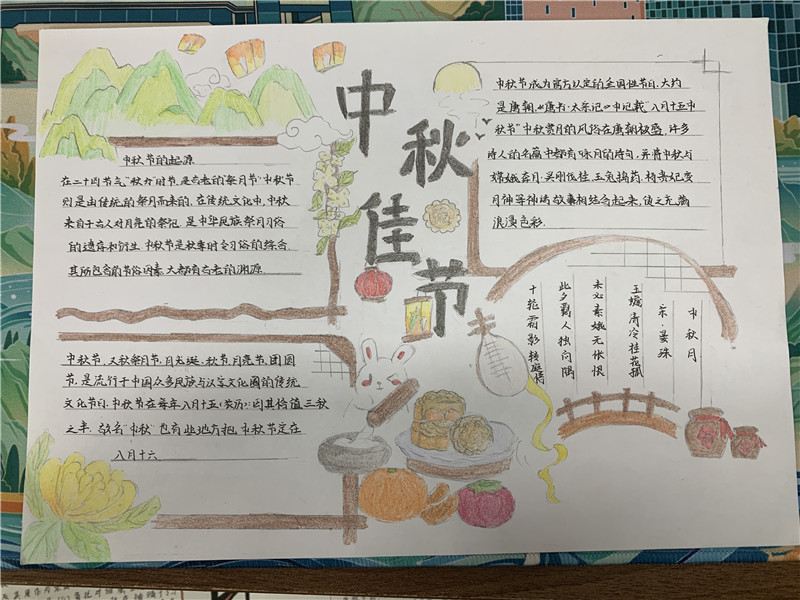 中秋佳节
中秋节的起源
在二十四节气"秋分"时节,是古老的"祭月节"中秋节
则是由传统的祭月而来的,在传统文化中,中秋
来自于古人对月亮的祭祀,是中华民族祭月习俗
的遗存和衍生.中秋节是秋季时令习俗的综合
其所包含的节俗因素,大都有古老的渊源
中秋节,又秋祭月节,月光诞,秋节,月亮节,团圆
节,是流行于中国众多民族与汉字文化圈的传统
文化节日,中秋节在每年八月十五(农历);因其恰值三秋
之半,故名"中秋"也有些地方把,中秋节定在
八月十六
中秋节成为官方认定的全国性节日,大约
是唐朝.《唐书·太宗记》中记载"八月十五中
秋节"中秋赏月的风俗在唐朝极盛,许多
诗人的名篇中都有咏月的诗句,并将中秋与
嫦娥奔月.吴刚伐桂,玉兔捣药,杨贵妃变
月神等神话故事相结合起来,使之充满
浪漫色彩.
中秋月
宋·晏殊
十轮霜影转庭梧
此夕羁人独向隅
未必素娥无怅恨
玉蟾清冷桂花孤